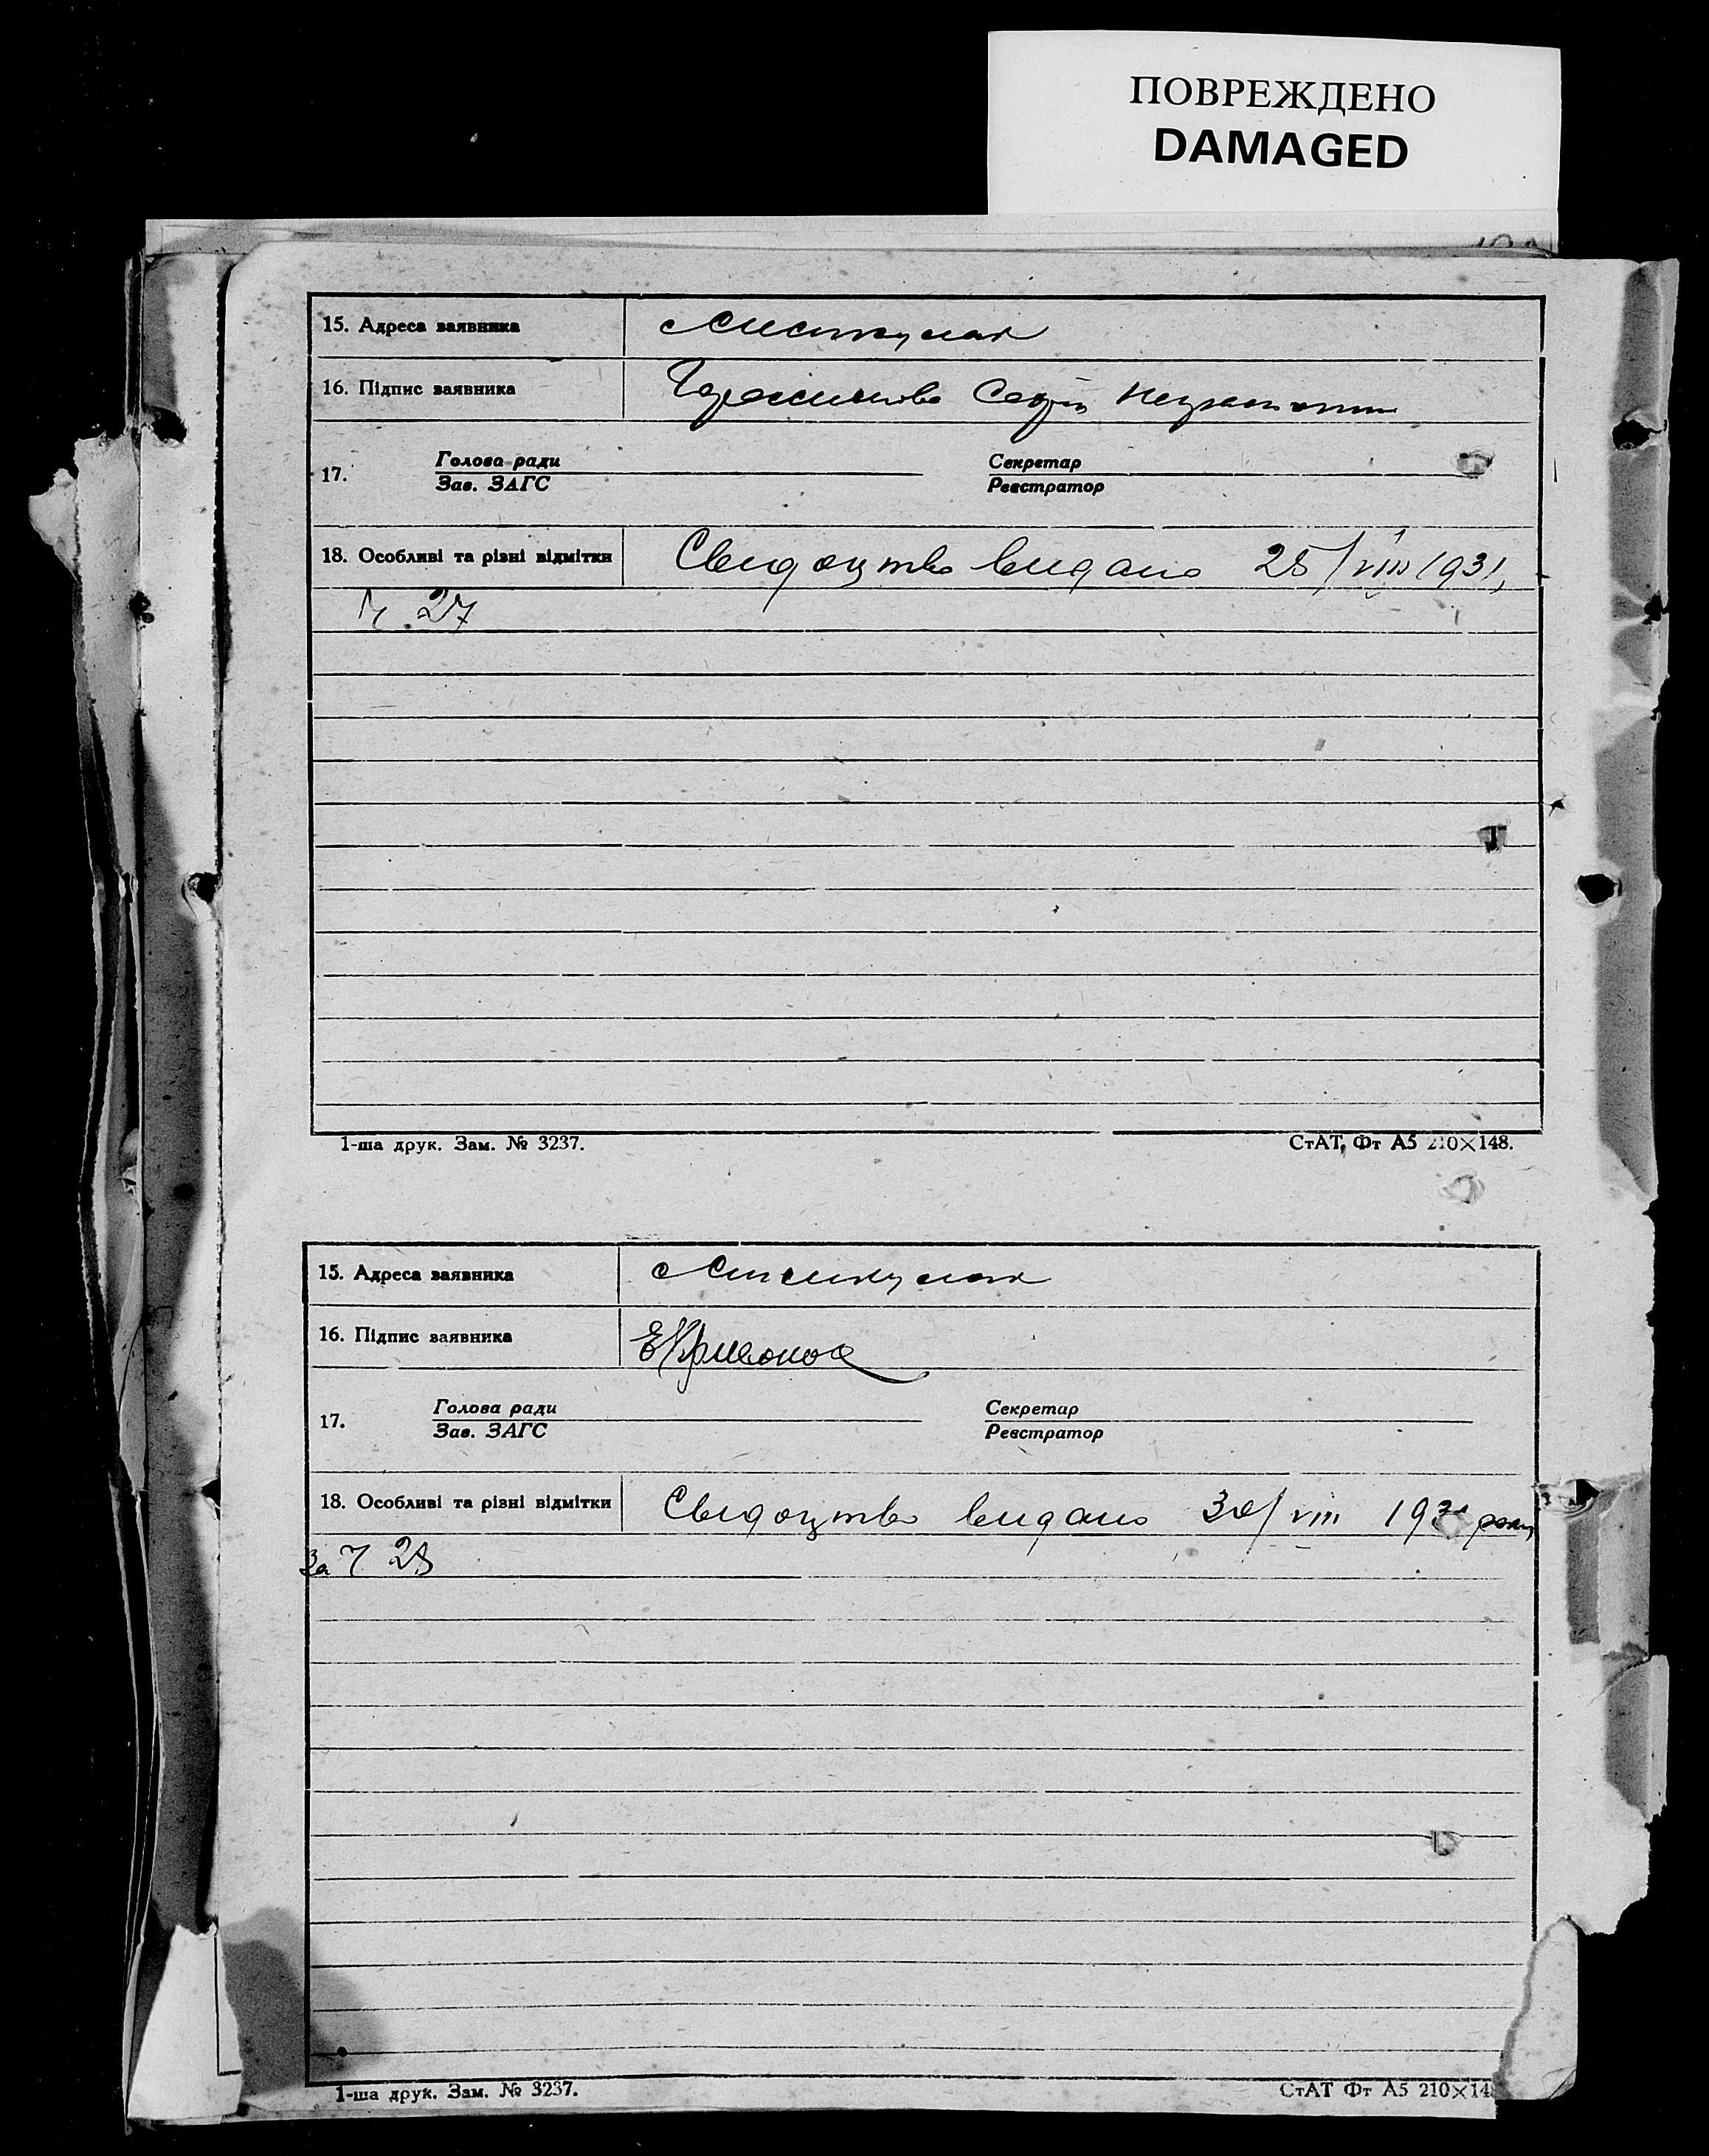 ПОВРЕЖДЕНО
DAMAGED
15. Адреса заявника
16. Підпис заявника
17. Голова ради Секретар
Зав. ЗАГС Реєстратор
18. Особливі та різні відмітки Свидоцтво видано 25/VIII 1931
ч. 27
1-ша друк. Зам. № 3237. СтАТ, Фт А5 210×148.
15. Адреса заявника
16. Підпис заявника ЕКривонос
17. Голова ради Секретар
Зав. ЗАГС Реєстратор
18. Особливі та різні відмітки Свидоцтво видано 30/VIII 1931 року
За ч 28
1-ша друк. Зам. № 3237. СтАТ Фт А5 210×148